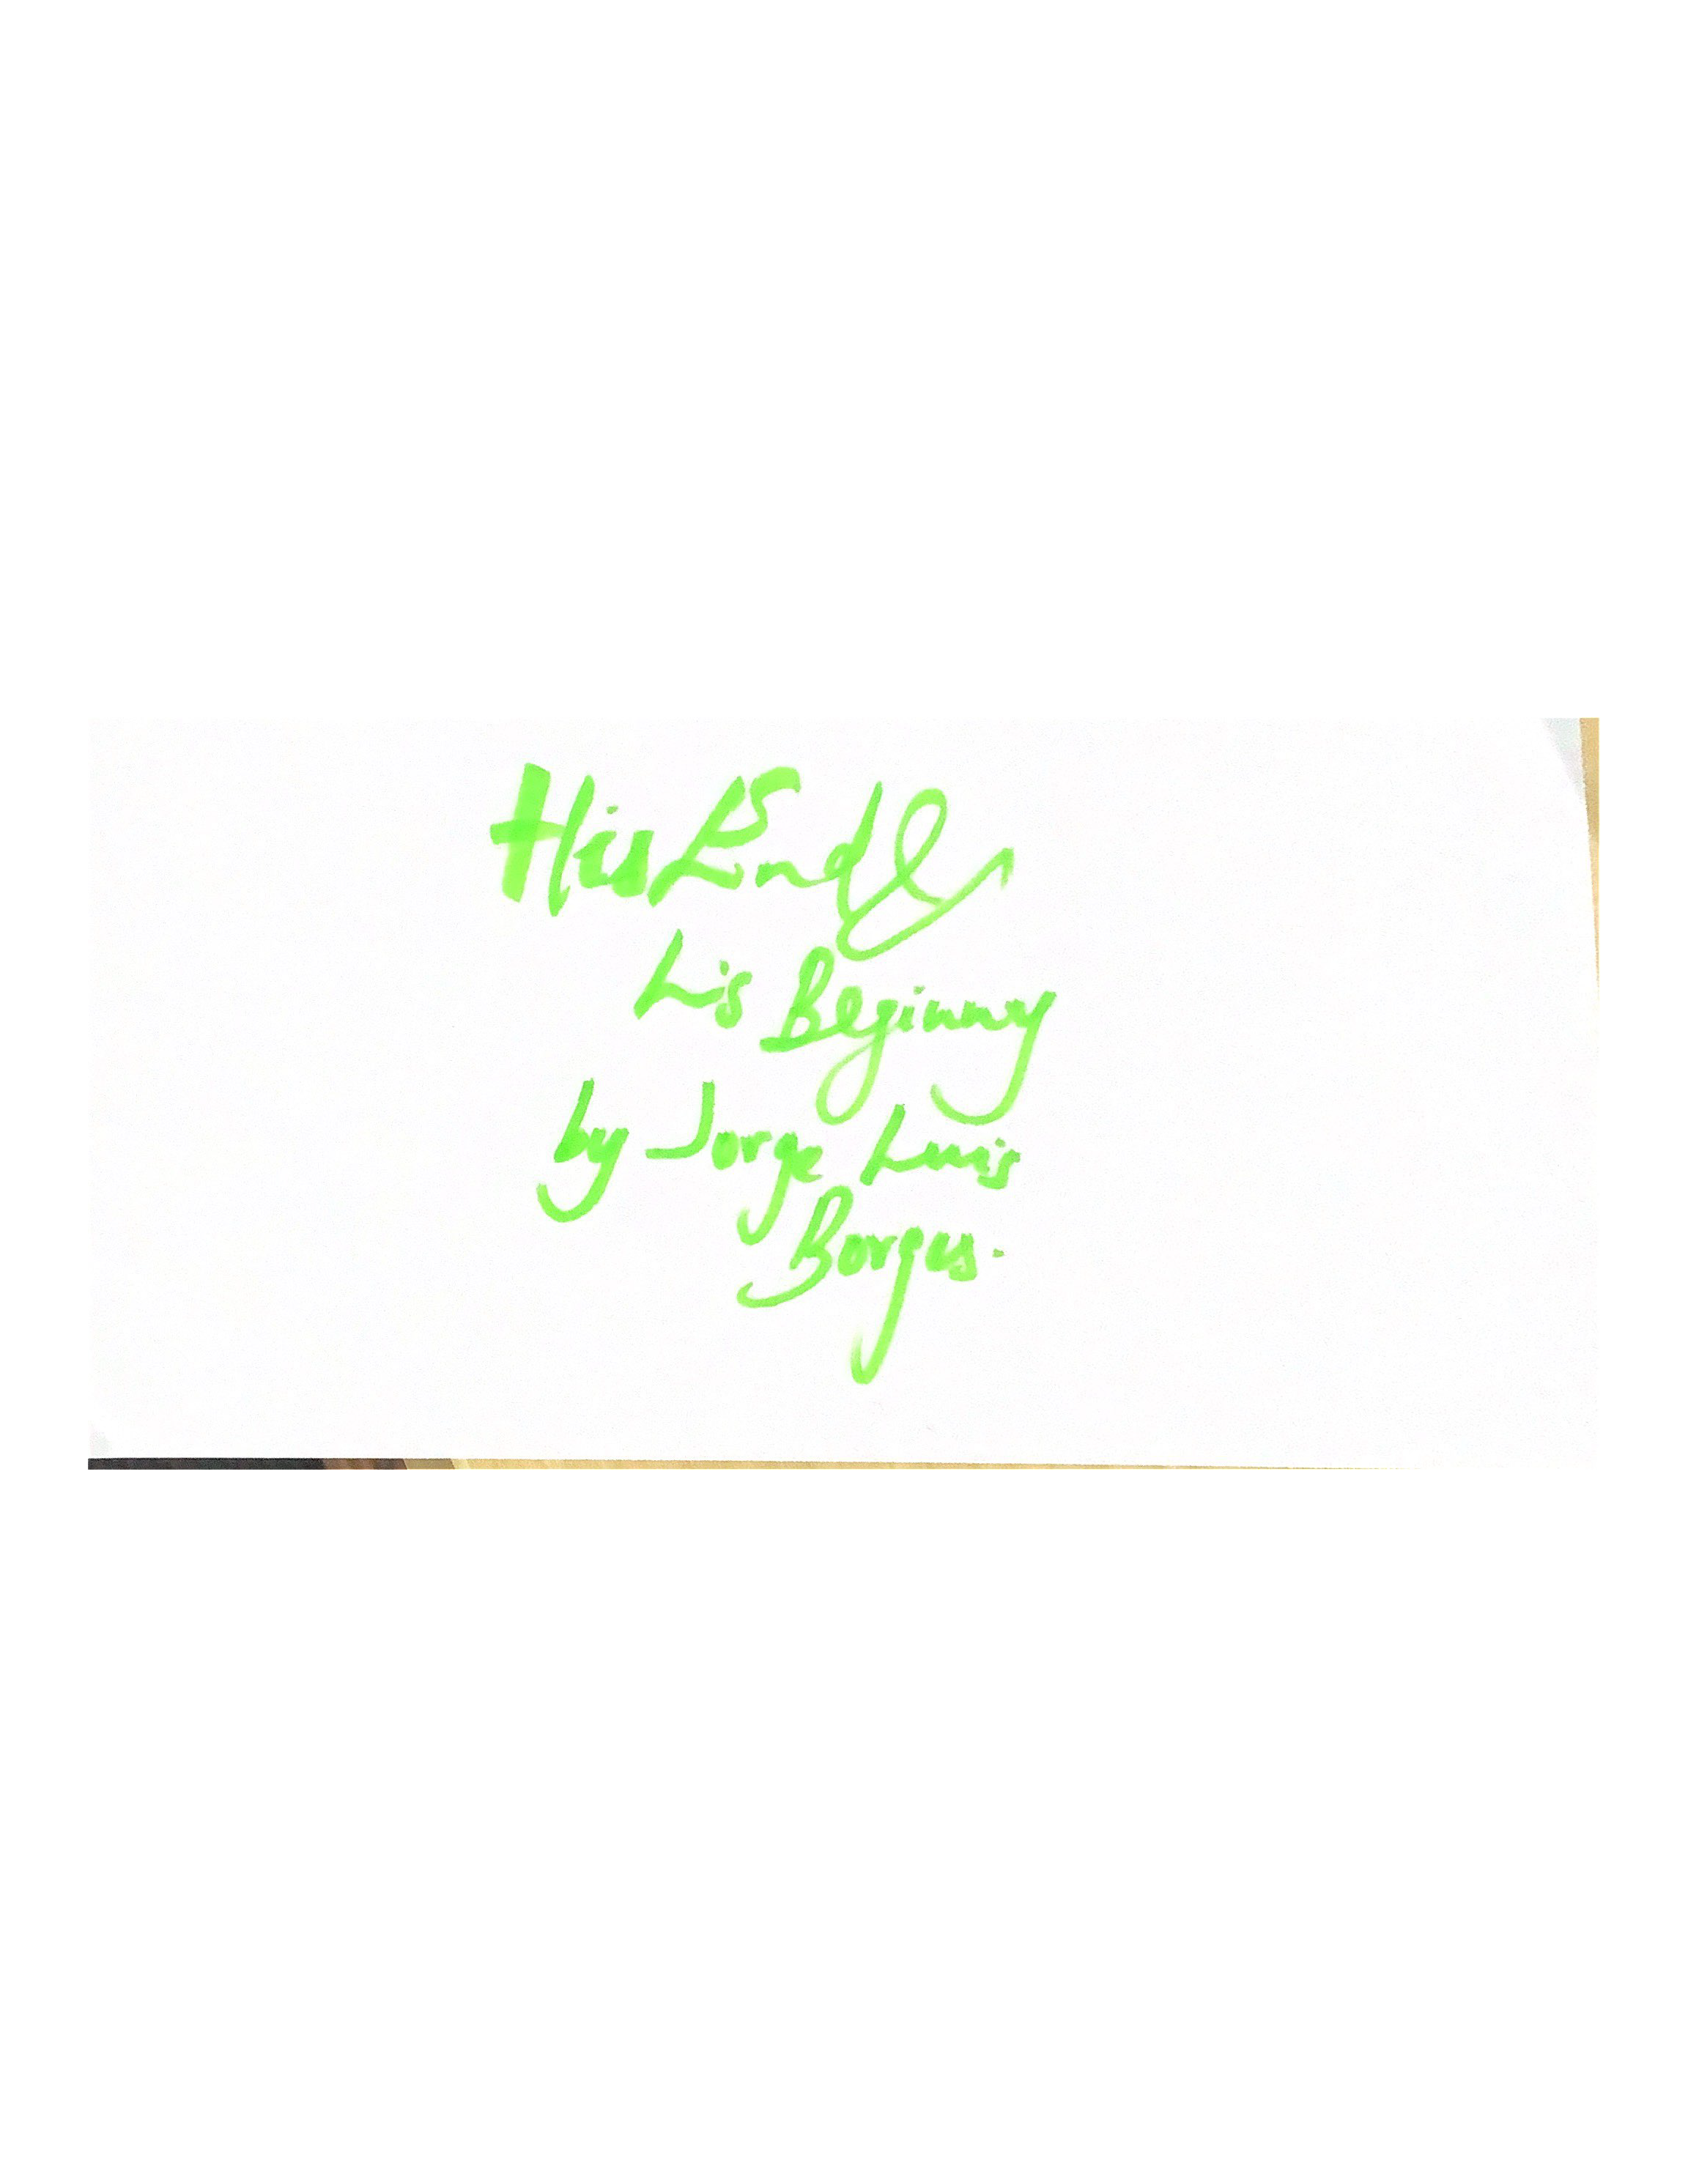 His End &
his Beginny
by Jorge Luis
Borges.